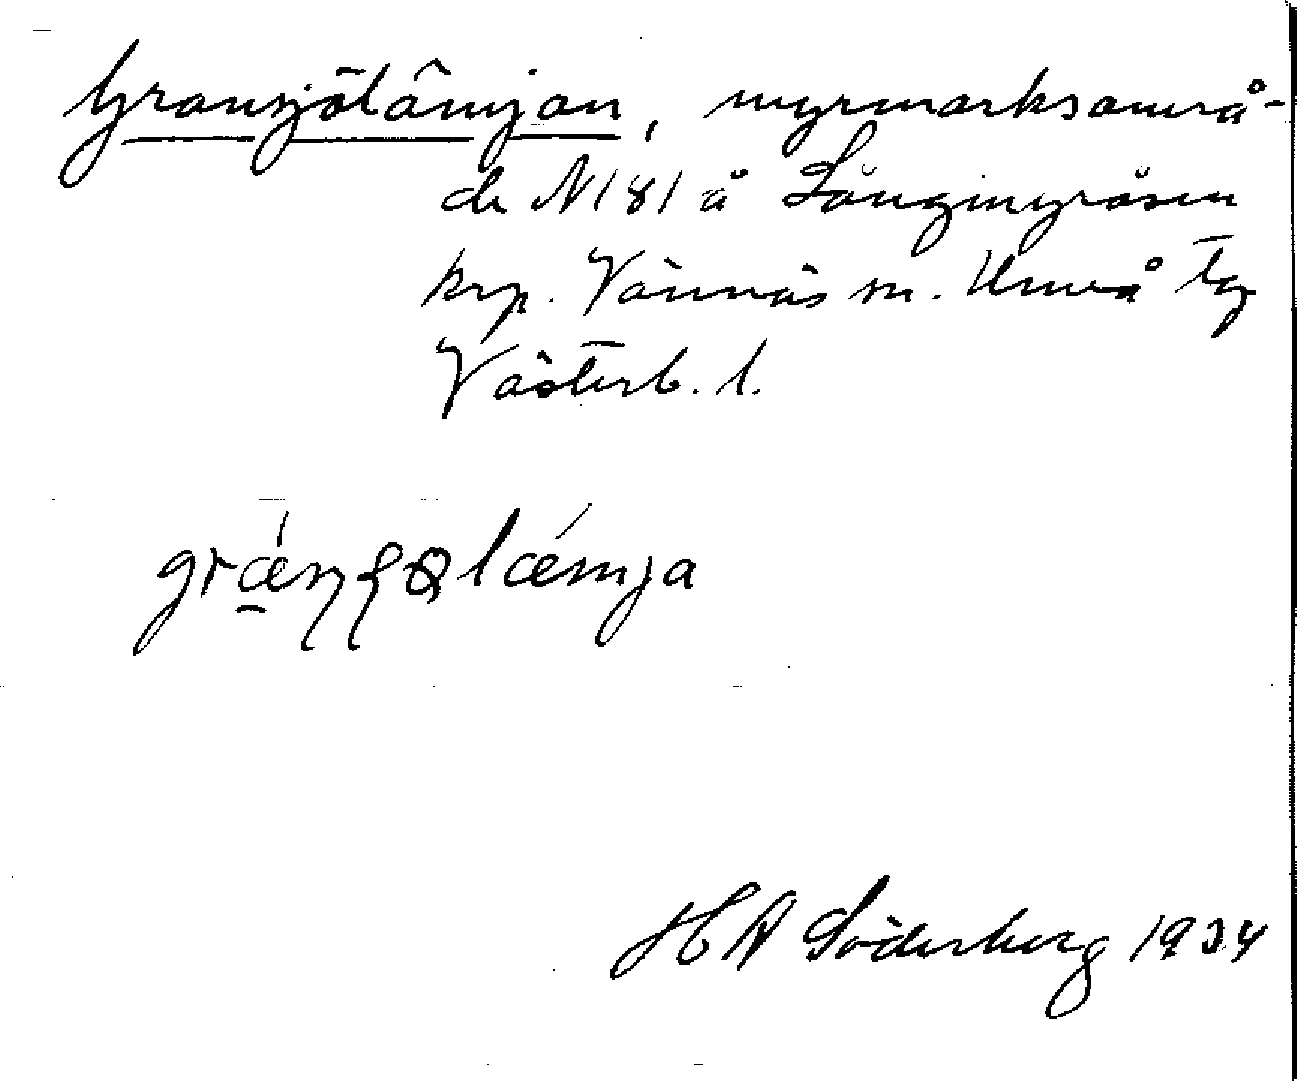 Gransjölâmjan, myrmarksområ-
de N 181 å Långmyråsen
krp. Vännäs sn. Umeå tg
Västerb. l.
grǽnʂølǽmja
H A Söderberg 1934